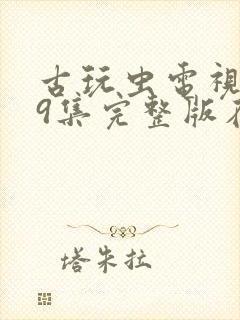 古玩虫电視
9集完整版在
塔朱拉